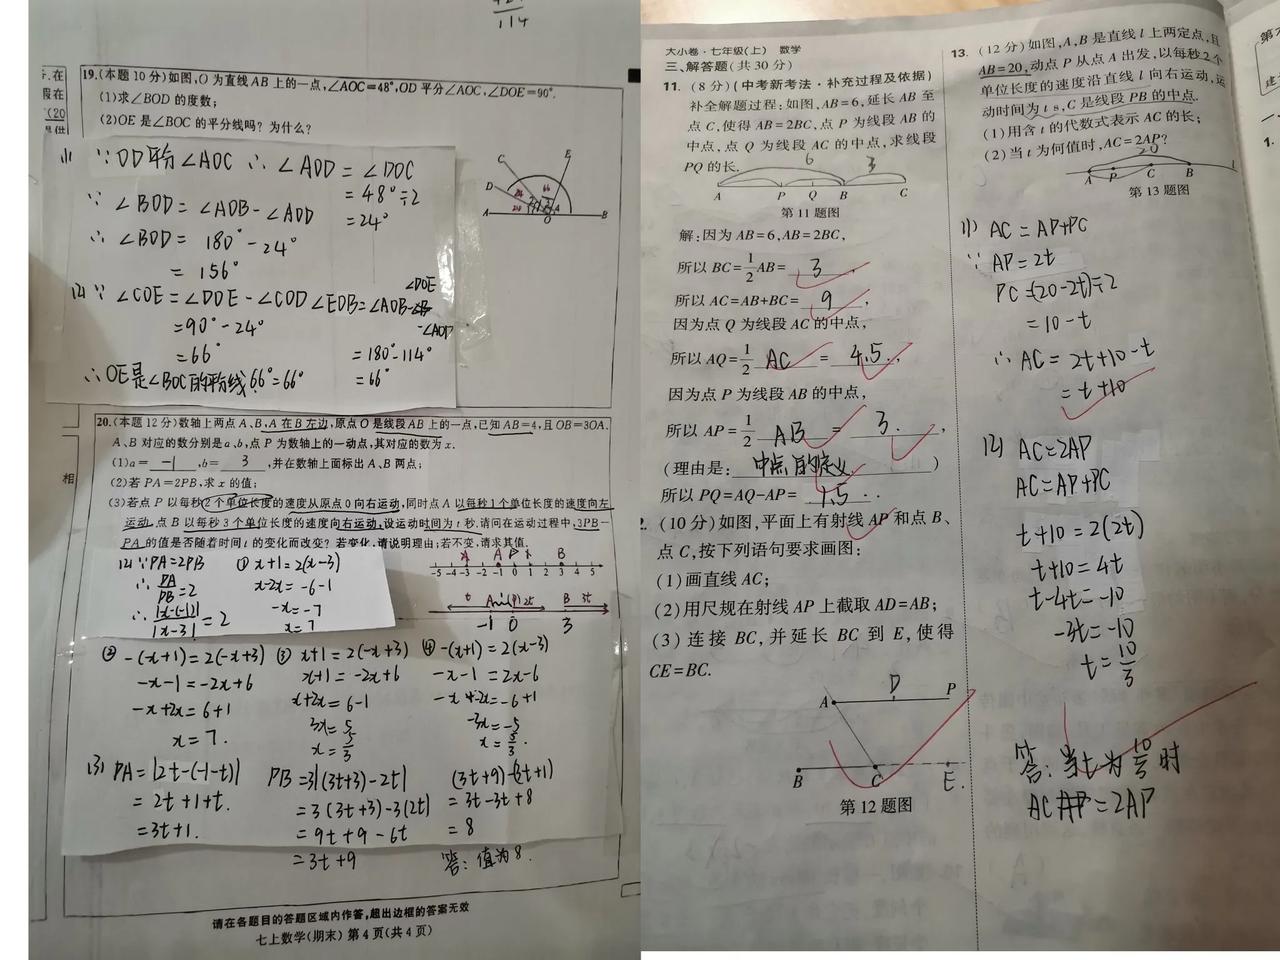 114
19.(本题10分)如图,O为直线AB上的一点,∠AOC=48°,OD平分∠AOC,∠DOE=90°.
(1)求∠BOD的度数;
(2)OE是∠BOC的平分线吗?为什么?
(1) ∵OD平分∠AOC ∴∠AOD=∠DOC
=48°÷2
=24°
∵ ∠BOD=∠AOB-∠AOD
∴ ∠BOD= 180°-24°
= 156°
(2) ∵ ∠COE=∠DOE-∠COD
=90°-24°
=66°
∠EOB=∠AOB-∠DOE
-∠AOD
=180°-114°
=66°
∴OE是∠BOC的平分线 66°=66°
C E D A O B
20.(本题12分)数轴上两点A、B,A在B左边,原点O是线段AB上的一点,已知AB=4,且OB=3OA.
A、B对应的数分别是a、b,点P为数轴上的一动点,其对应的数为x.
(1)a= -1 ,b= 3 ,并在数轴上面标出A、B两点;
(2)若PA=2PB,求x的值;
(3)若点P以每秒2个单位长度的速度从原点O向右运动,同时点A以每秒1个单位长度的速度向左
运动,点B以每秒3个单位长度的速度向右运动,设运动时间为t秒.请问在运动过程中,3PB-
PA的值是否随着时间t的变化而改变?若变化,请说明理由;若不变,请求其值.
-5 -4 -3 -2 -1 0 1 2 3 4 5
-1 0 3
(2) ∵PA=2PB
∴ PA/PB=2
∴ |x-(-1)|/|x-3|=2
① x+1=2(x-3)
x-2x=-6-1
-x=-7
x=7
② -(x+1)=2(-x+3)
-x-1=-2x+6
-x+2x=6+1
x=7.
③ x+1=2(-x+3)
x+1=-2x+6
x+2x=6-1
3x=5
x=5/3
④ -(x+1)=2(x-3)
-x-1=2x-6
-x+2x=-6+1
-3x=-5
x=5/3.
(3) PA=|2t-(-1-t)|
=2t+1+t.
=3t+1.
PB=3|(3t+3)-2t|
=3(3t+3)-3(2t)
=9t+9-6t
=3t+9
(3t+9)-(3t+1)
=3t-3t+8
=8
答:值为8.
请在各题目的答题区域内作答,超出边框的答案无效
七上数学(期末) 第4页(共4页)
大小卷·七年级(上) 数学
三、解答题(共30分)
11.(8分)(中考新考法·补充过程及依据)
补全解题过程:如图,AB=6,延长AB至
点C,使得AB=2BC,点P为线段AB的
中点,点Q为线段AC的中点,求线段
PQ的长.
6 3
A P Q B C
第11题图
解:因为AB=6,AB=2BC,
所以BC=1/2AB= 3 ,
所以AC=AB+BC= 9 ,
因为点Q为线段AC的中点,
所以AQ=1/2 AC = 4.5 ,
因为点P为线段AB的中点,
所以AP=1/2 AB = 3 ,
(理由是: 中点的定义 )
所以PQ=AQ-AP= 1.5 .
2.(10分)如图,平面上有射线AP和点B、
点C,按下列语句要求画图:
(1)画直线AC;
(2)用尺规在射线AP上截取AD=AB;
(3)连接BC,并延长BC到E,使得
CE=BC.
A D P
B C E.
第12题图
13.(12分)如图,A,B是直线l上两定点,且
AB=20,动点P从点A出发,以每秒2个
单位长度的速度沿直线l向右运动,运
动时间为t s,C是线段PB的中点.
(1)用含t的代数式表示AC的长;
(2)当t为何值时,AC=2AP?
20
A P C B l
第13题图
(1) AC=AP+PC
∵ AP=2t
PC=(20-2t)÷2
=10-t
∴ AC= 2t+10-t
=t+10
(2) AC=2AP
AC=AP+PC
t+10=2(2t)
t+10=4t
t-4t=-10
-3t=-10
t=10/3
答:当t为10/3时
AC=2AP